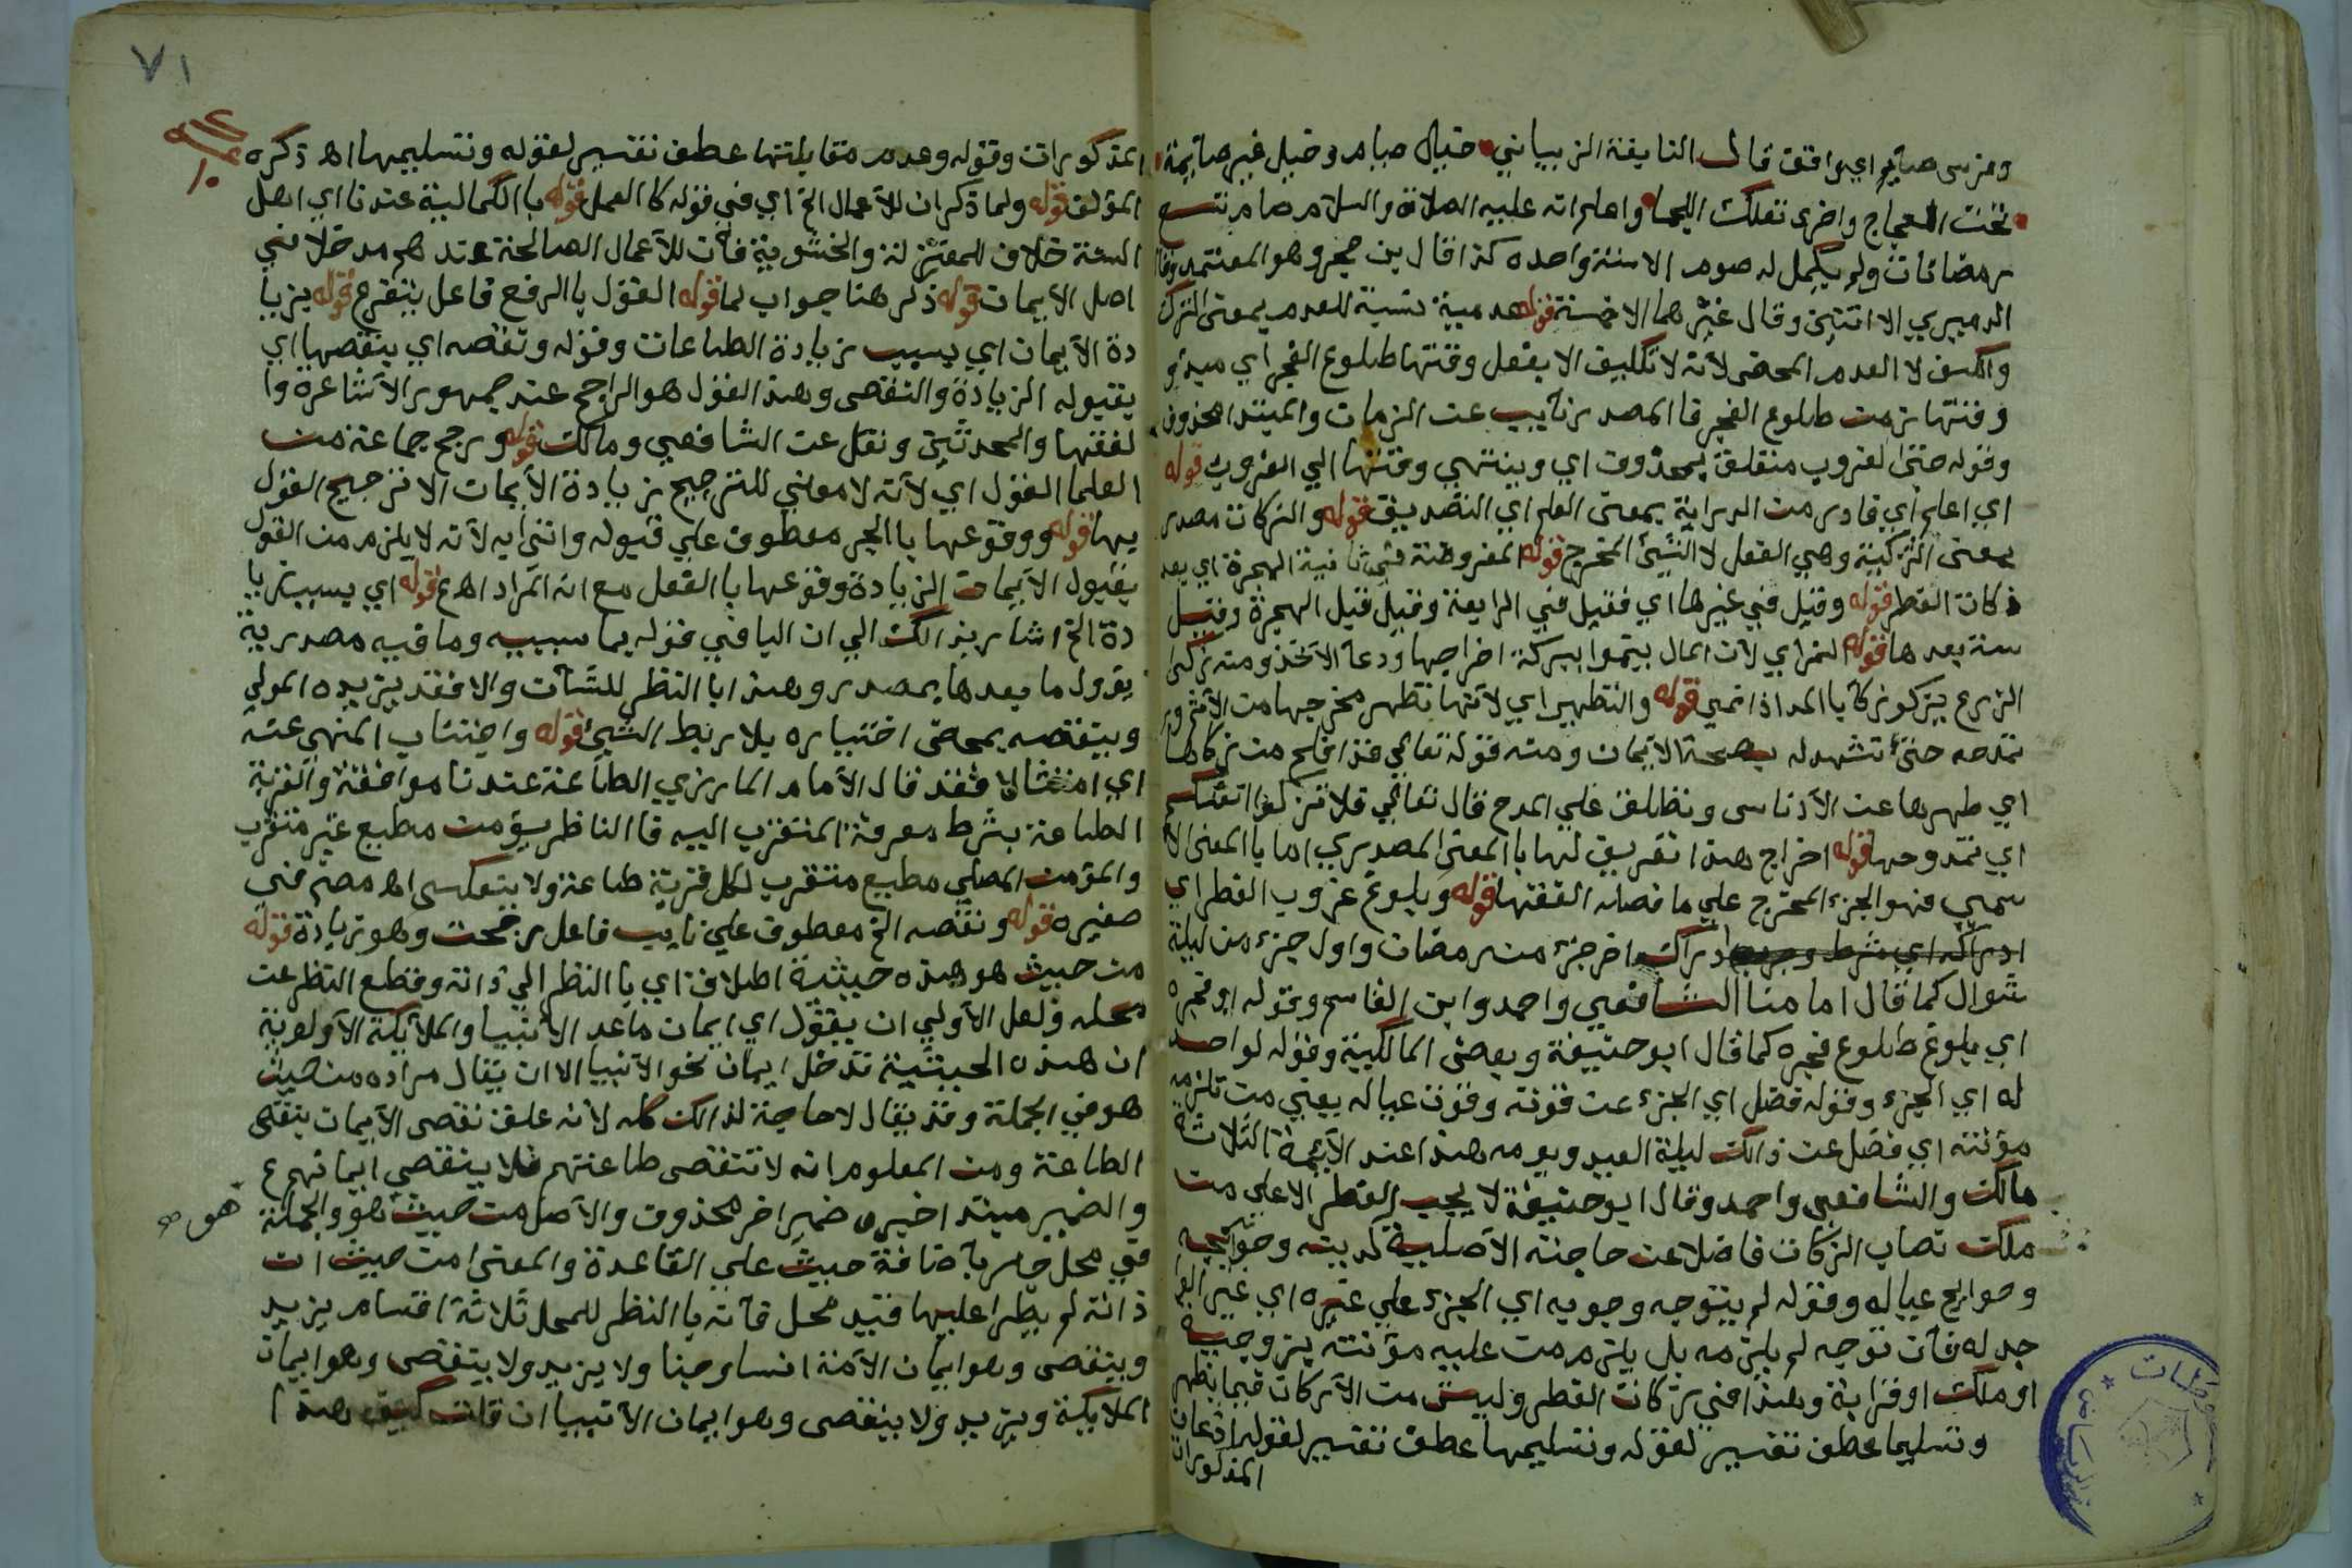 وفرس صايم اي واقف قال النابغة الزبياني خيال صيام وخيل غير صايمة
تحت العجاج واخرى تعلك اللجما واعلم انه عليه الصلاة والسلام صام تسع
رمضانات ولم يكمل له صوم الا سنة واحده كذا قال بن حجر وهو المعتمد وقال
الدميري الا اثنتين وقال غيرهما الا خمسة قوله عدمية نسبة للعدم بمعنى الترك
والكف لا العدم المحض لانه لا تكليف الا بفعل وقتها طلوع الفجر اي مبدؤ
وقتها زمن طلوع الفجر فا المصدر نايب عن الزمان والمبتدا محذوف
وقوله حتى الغروب متعلق بمحذوف اي وينتهي وقتها الي الغروب قوله
اي اعلم اي فادر من الدراية بمعنى العلم اي التصديق قوله والزكات مصدر
بمعنى التزكية وهي الفعل لا الشيئ المخرج قوله المفروضة في ثانية الهجرة اي بعد
زكات الفطر قوله وقيل في غيرها اي فقيل في الرابعة وقيل قبل الهجرة وقيل
سنة بعدها قوله النمو اي لان المال ينموا ببركة اخراجها ودعآ الآخذ ومنه زكى
الزرع يزكو زكآ با المد اذا نمي قوله والتطهير اي لآنها تطهر مخرجها من الآثم و
تمدحه حتى تشهد له بصحة الآيمان ومنه قوله تعالي قد افلح من زكاها
اي طهرها عن الآدناس وتطلق علي المدح قال تعالي فلا تزكوا انفسكم
اي تمدحوها قوله اخراج هذا تعريف لها با المعنى المصدري اما با المعنى الا
سمي فهو الجزء المخرج علي ما فصله الفقها قوله وبلوغ غروب الفطر اي
ادراكه اي شرط وجوبها ادراك اخر جزء من رمضان واول جزء من ليلة
شوال كما قال امامنا الشافعي واحمد وابن القاسم وقوله او فجره
اي بلوغ طلوع فجره كما قال ابو حنيفة وبعض المالكية وقوله لواجد
له اي الجزء وقوله فضل اي الجزء عن قوته وقوت عياله يعني من تلزمه
مؤنته اي فضل عن ذالك ليلة العيد ويومه هذا عند الآيمة الثلاثة
مالك والشافعي واحمد وقال ابو حنيفة لا يجب الفطر الا علي من
ملك نصاب الزكات فاضلا عن حاجته الآصلية لدينه وحوايجه
وحوايج عياله وقوله لم يتوجه وجوبه اي الجزء علي غيره اي غير الوا
جد له فآن توجه لم يلزمه بل يلزم من عليه مؤنته بزوجية
او ملك او قرابة وهذا في زكات الفطر وليس من الآركان فيما يظهر
وتسليما عطف تفسير لقوله وتسليمها عطف تفسير لقوله اذعان
المذكورات
٧١
المذكورات وقوله وعدم مقابلتها عطف تفسير لقوله وتسليمها اه ذكره
المؤلف قوله ولما ذكر ان للآعمال الخ اي في قوله كا العمل قوله با الكمالية عندنا اي اهل
السنة خلاف للمعتزلة والخشوية فآن للآعمال الصالحة عندهم مدخلا في
اصل الآيمان قوله ذكر هنا جواب لما قوله القول با الرفع فاعل بتفرع قوله يزيا
دة الآيمان اي بسبب زيادة الطاعات وقوله ونقصه اي ينقصها اي
بقبوله الزيادة والنقص وهذا القول هو الراجح عند جمهور الآشاعرة وا
لفقها والمحدثين ونقل عن الشافعي ومالك قوله ورجح جماعة من
العلما القول اي لآنه لا معني للترجيح زيادة الآيمان الا ترجيح القول
بها قوله ووقوعها با الجر معطوف علي قبوله واتى به لآنه لا يلزم من القول
بقبول الآيمان الزيادة وقوعها با الفعل مع انه المراد اه ع قوله اي بسبب زيا
دة الخ اشار بذالك الي ان البا في قوله بما سببيه وما فيه مصدرية
يؤول ما بعدها بمصدر وهذا با النظر للشآن والا فقد يزيده المولي
وينقصه بمحض اختياره بلا ربط الشيئ قوله واجتناب المنهي عنه
اي امتثالا فقد قال الآمام المازري الطاعة عندنا موافقة والقربة
الطاعة بشرط معرفة المتقرب اليه فا الناظر يؤمن مطيع غير متقرب
والمؤمن المصلي مطيع متقرب لكل قربة طاعة ولا ينعكس اه مصنم في
صغيره قوله ونقصه الخ معطوف علي نايب فاعل رجحت وهو زيادة قوله
من حيث هو هذه حيثية اطلاق اي با النظر الي ذاته وقطع النظر عن
محله ولعل الآولي ان يقول اي ايمان ماعد الآنبيا والملآيكة الآولوية
ان هذه الحيثية تدخل ايمان نحو الآنبيا الا ان يقال مراده من حيث
هو في الجملة وقد يقال لا حاجة لذالك كله لآنه علق نقص الآيمان بنقص
الطاعة ومن المعلوم انه لا تنقص طاعتهم فلا ينقص ايمانهم ع
والضمير مبتدا خبره ضمير اخر محذوف والآصل من حيث هو والجملة
هو صح
في محل جر بآضافة حيث علي القاعدة والمعنى من حيث ان
ذاته لم يطرا عليها قيد محل فآنه با النظر للمحل ثلاثة اقسام يزيد
وينقص وهو ايمان الآمة انسا وجنا ولا يزيد ولا ينقص وهو ايمان
الملآيكة ويزيد ولا ينقص وهو ايمان الآنبيا ان قلت كيف هذا